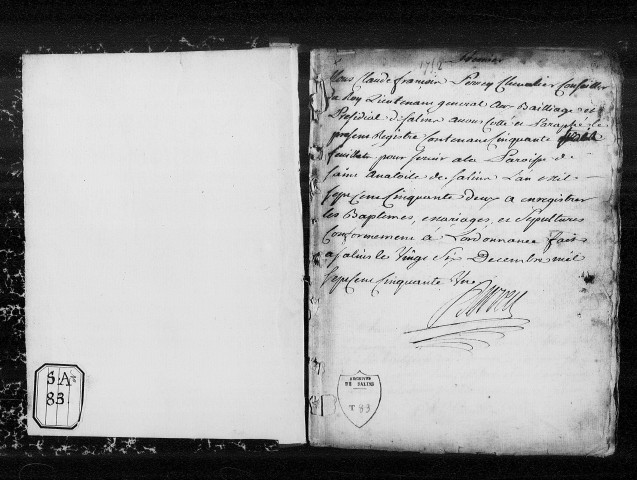 1752
Premier
Nous Claude francois Perrey Chevalier Conseiller
du Roy Lieutenant general au Bailliage et
Presidial de Salins avons Cotté et Paraphé le
present Registre Contenant Cinquante
feuillets pour servir a la Paroisse de
saint Anatoile de Salins L'an mil
sept Cent Cinquante deux a enregistrer
les Baptemes, mariages, et sepultures
Conformement à L'ordonnance fait
a salins le Vingt Six Decembre mil
sept Cent Cinquante Un
Perrey
S.A.
83
ARCHIVES
DE SALINS
T 83